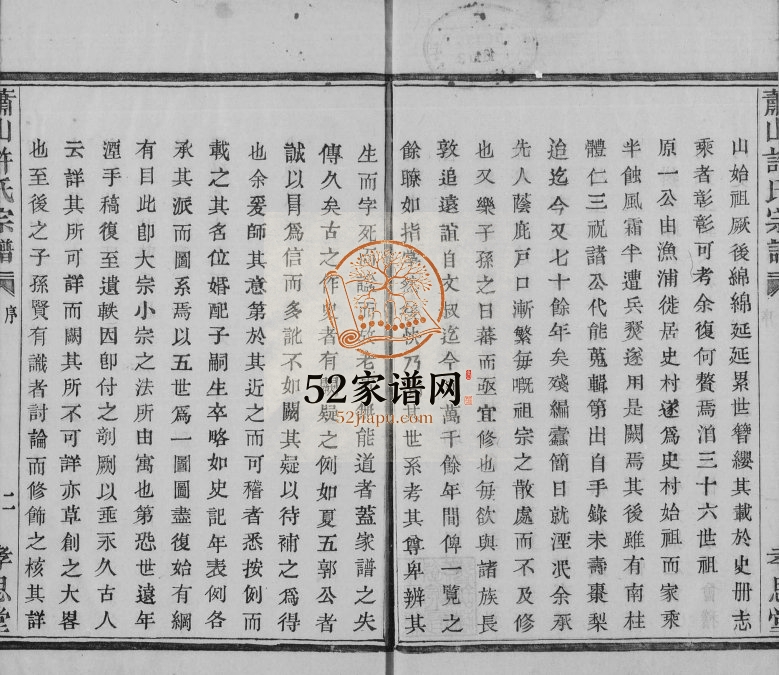 蕭山許氏宗譜
山始祖厥後綿綿延延累世簪纓其載於史册志
乘者彰彰可考余復何贅焉洎三十六世祖
原一公由漁浦徙居史村遂爲史村始祖而家乘
半蝕風霜半遭兵燹遂用是闕焉其後雖有南柱
體仁三祝諸公代能蒐輯第出自手錄未壽棗梨
迨迄今又七十餘年矣殘編蠹簡日就湮泯余承
先人蔭庇戸口漸繁每嘅祖宗之散處而不及修
也又樂子孫之日蕃而亟宜修也每欲與諸族長
敦追遠誼自文叔迄今萬千餘年間俾一覽之
餘瞭如指掌快乃其世系考其尊卑辨其
生而字死而諡而故老無能道者蓋家譜之失
傳久矣古之作史者有闕疑之例如夏五郭公者
誠以冐爲信而多訛不如闕其疑以待補之爲得
也余爰師其意第於其近之而可稽者悉按例而
載之其名位婚配子嗣生卒略如史記年表例各
承其派而圖系焉以五世爲一圖圖盡復始有綱
有目此卽大宗小宗之法所由寓也第恐世遠年
湮手稿復至遺軼因卽付之剞劂以垂永久古人
云詳其所可詳而闕其所不可詳亦草創之大畧
也至後之子孫賢有識者討論而修飾之核其詳
蕭山許氏宗譜
序
二
孝思堂
52家谱网
52jiapu.com